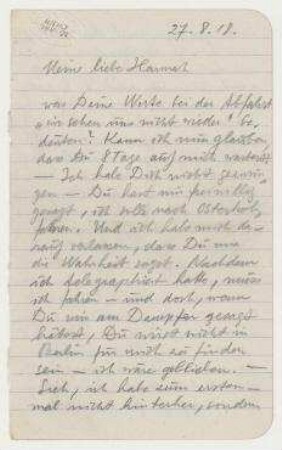 27.8.18.
Meine liebe Hannah
was Deine Worte bei der Abfahrt
"wir sehen uns nicht wieder" be-
deuten? Kann ich nun glauben,
dass Du 8 Tage auf mich wartest
— Ich habe Dich nicht gezwun-
gen — Du hast mir freiwillig
gesagt, ich solle nach Osterholz
fahren. Und ich habe mich da-
rauf verlassen, dass Du mir
die Wahrheit sagst. Nachdem
ich telegraphiert hatte, muss
ich fahren — und doch, wenn
Du mir am Dampfer gesagt
hättest, Du wirst nicht in
Berlin für mich zu finden
sein — ich wäre geblieben. —
Sieh, ich habe zum ersten-
mal nicht hinterher, sondern